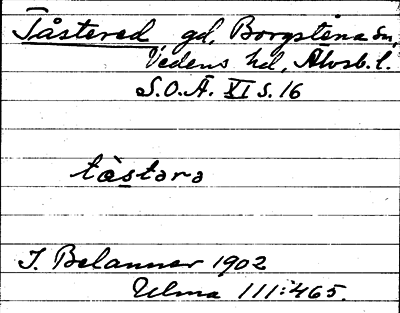 Tåstered gd, Borgstena sn,
Vedens hd, Älvsb. l.
S.O.Ä. XI s. 16
tåstara
J. Belanner 1902
Ulma 111:465.